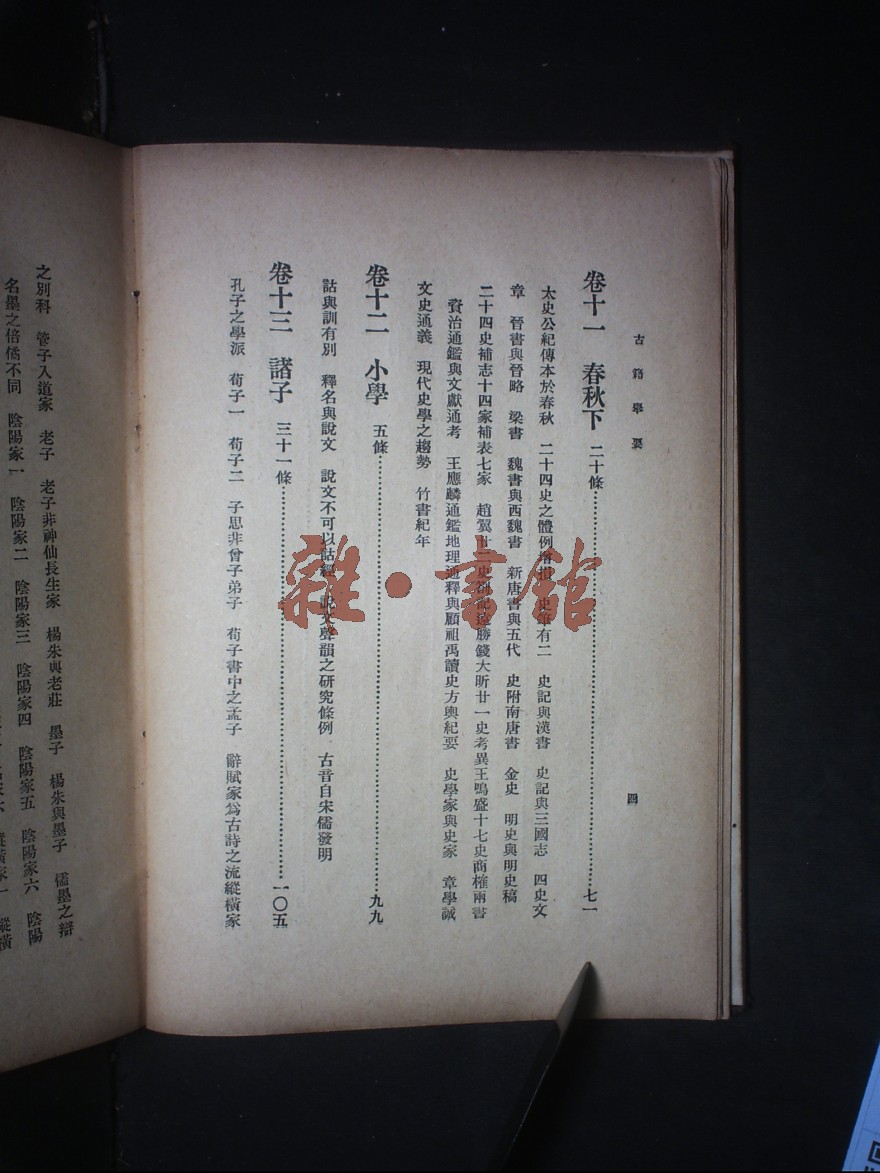 古籍舉要
四
卷十一 春秋下 二十條……七一
太史公紀傳本於春秋 二十四史之體例增損 史筆有二 史記與漢書 史記與三國志 四史文
章 晉書與晉略 梁書 魏書與西魏書 新唐書與五代 史附南唐書 金史 明史與明史稿
二十四史補志十四家補表七家 趙翼廿二史劄記 勝錢大昕廿一史考異王鳴盛十七史商榷兩書
資治通鑑與文獻通考 王應麟通鑑地理通釋與顧祖禹讀史方輿紀要 史學家與史家 章學誠
文史通義 現代史學之趨勢 竹書紀年
卷十二 小學 五條……九九
詁與訓有別 釋名與說文 說文不可以詁經 說文聲韻之研究條例 古音自宋儒發明
卷十三 諸子 三十一條……一〇五
孔子之學派 荀子一 荀子二 子思非曾子弟子 荀子書中之孟子 辭賦家爲古詩之流縱橫家
之別科 管子入道家 老子 老子非神仙長生家 楊朱與老莊 墨子 楊朱與墨子 儒墨之辯
名墨之倍僪不同 陰陽家一 陰陽家二 陰陽家三 陰陽家四 陰陽家五 陰陽家六 陰陽
縱橫家一 縱橫
雜·書館